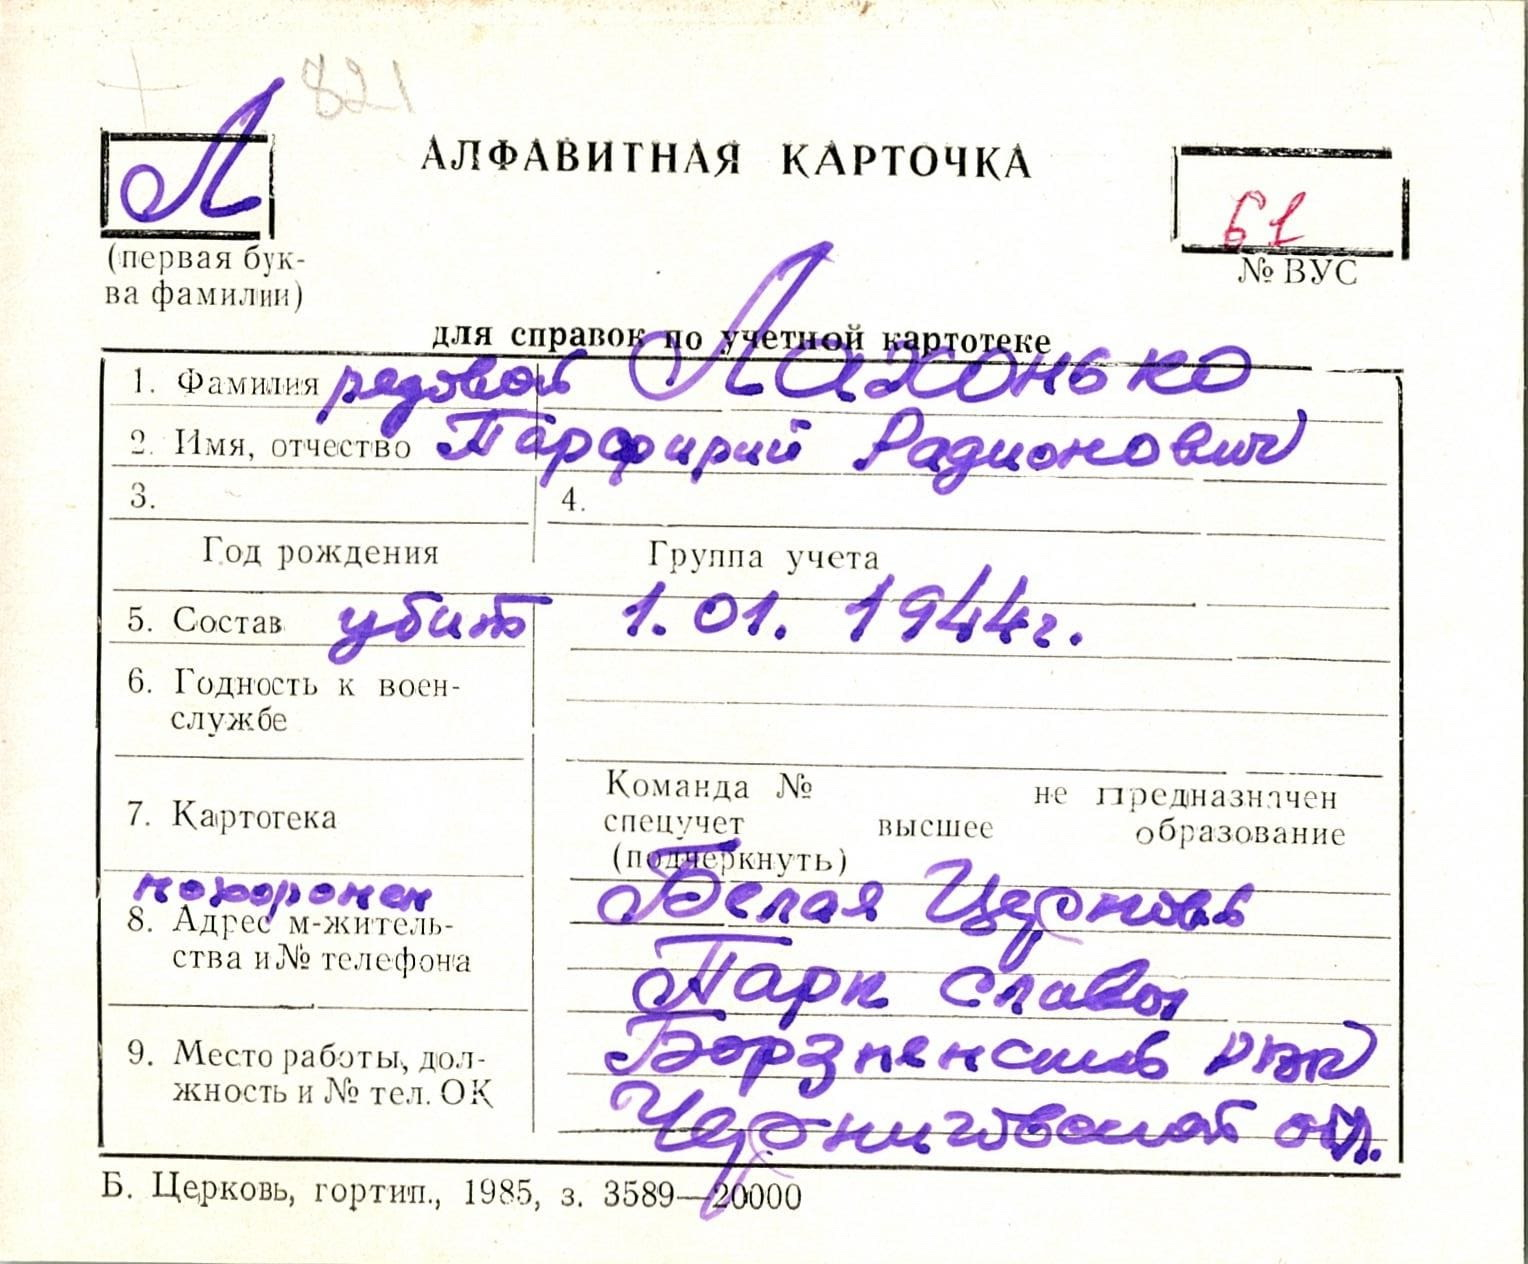 821
Л
АЛФАВИТНАЯ КАРТОЧКА
61
(первая бук-
ва фамилии)
№ ВУС
для справок по учетной картотеке
1. Фамилия рядовой Лахонько
2. Имя, отчество Парфирий Радионович
3. 4.
Год рождения Группа учета
5. Состав убит 1.01.1944г.
6. Годность к воен-
службе
7. Картотека
Команда № не предназначен
спецучет высшее образование
(подчеркнуть)
похоронен Белая Церковь
8. Адрес м-житель-
ства и № телефона
Парк Славы
9. Место работы, дол-
жность и № тел. ОК
Борзненский РВК
Черниговской обл.
Б. Церковь, гортип., 1985, з. 3589—20000